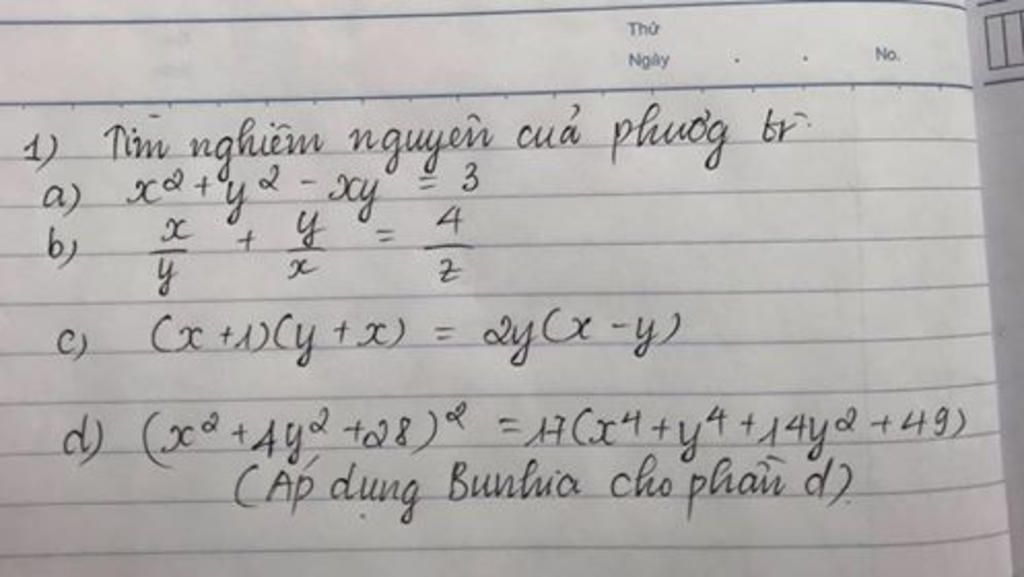 Thứ
Ngày . . No.
1) Tìm nghiêm nguyên cuả phươg tr̀.
a) x² + y² - xy = 3
b) x/y + y/x = 4/z
c) (x+1)(y+x) = 2y(x-y)
d) (x² + 4y² + 28)² = 17(x⁴ + y⁴ + 14y² + 49)
(Áp dụng Bunhia cho phần d)